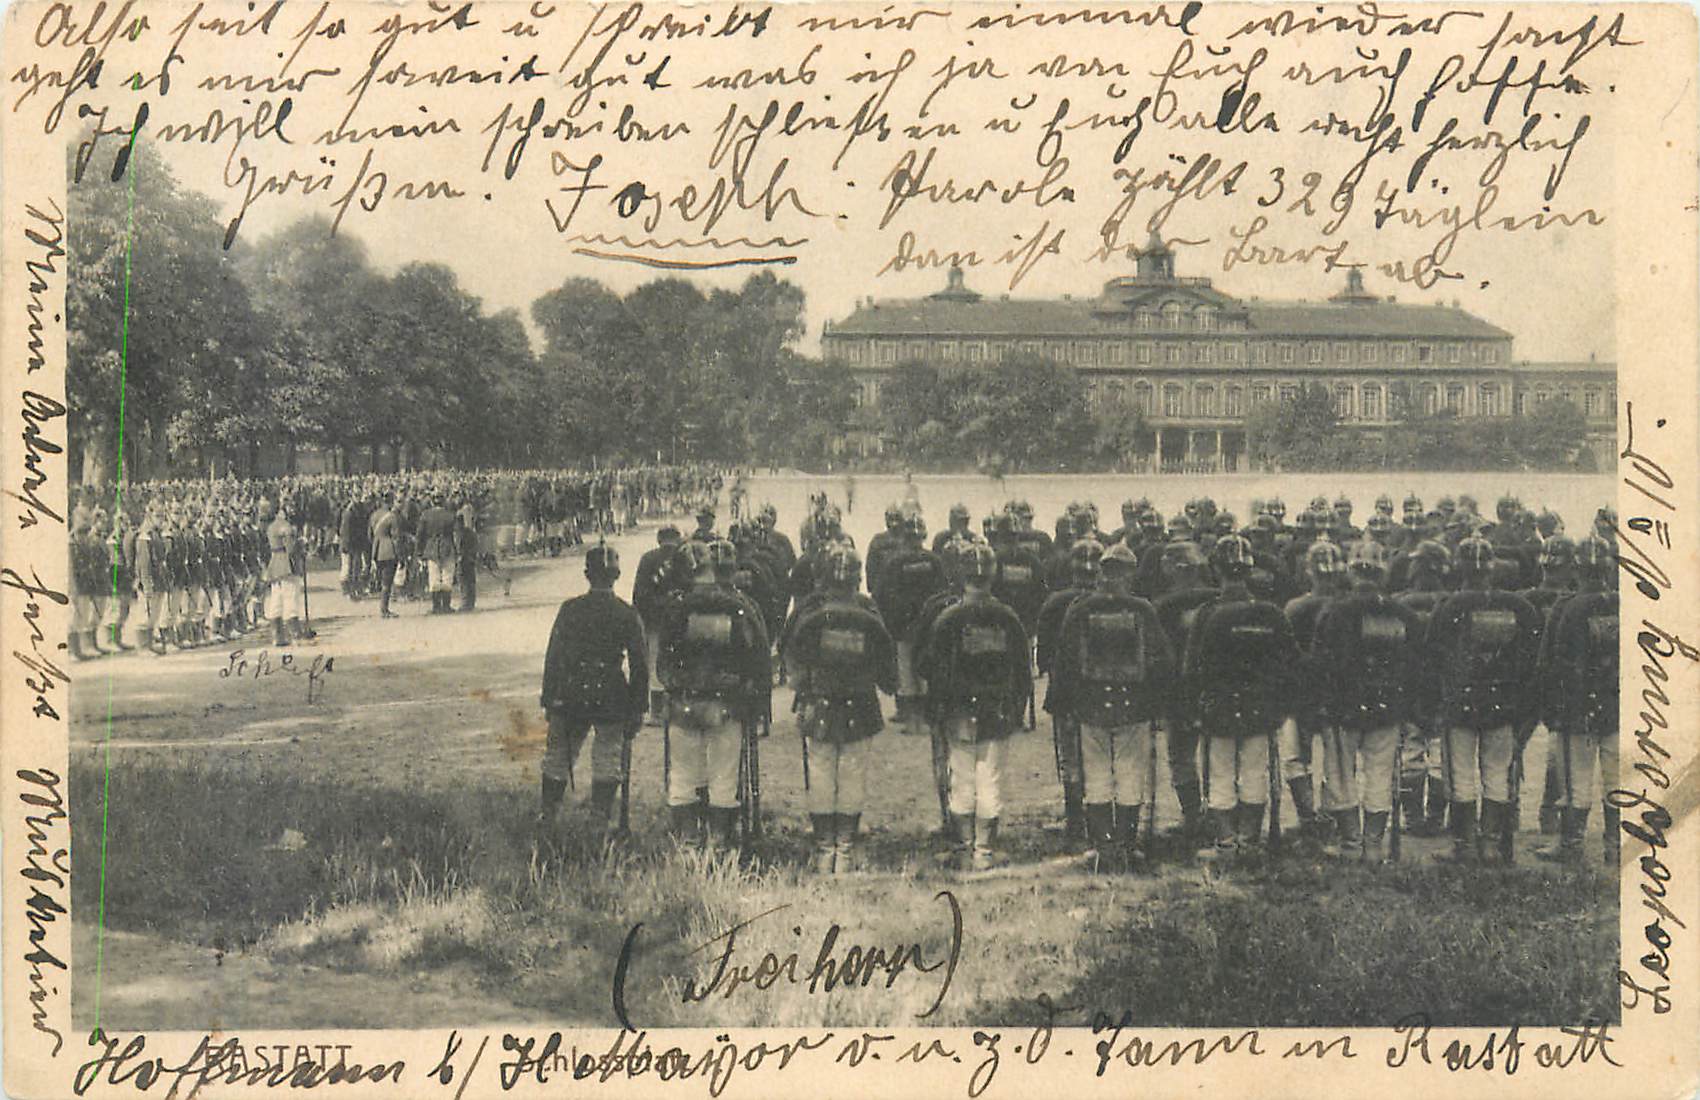 Also seit so gut u schreibt mir einmal wieder sonst
geht es mir soweit gut was ich ja von Euch auch hoffe.
Ich will mein schreiben schließen u Euch alle recht herzlich
Grüßen. Joseph. Parole zählt 329 Täglein
dan ist der Bart ab.
Meine Adresse heißt Musketier
Hoffmann b/ H Mayor v. u. z. d. Tann in Rastatt
(Freiherr)
Leopoldsring
RASTATT
Schlossplatz